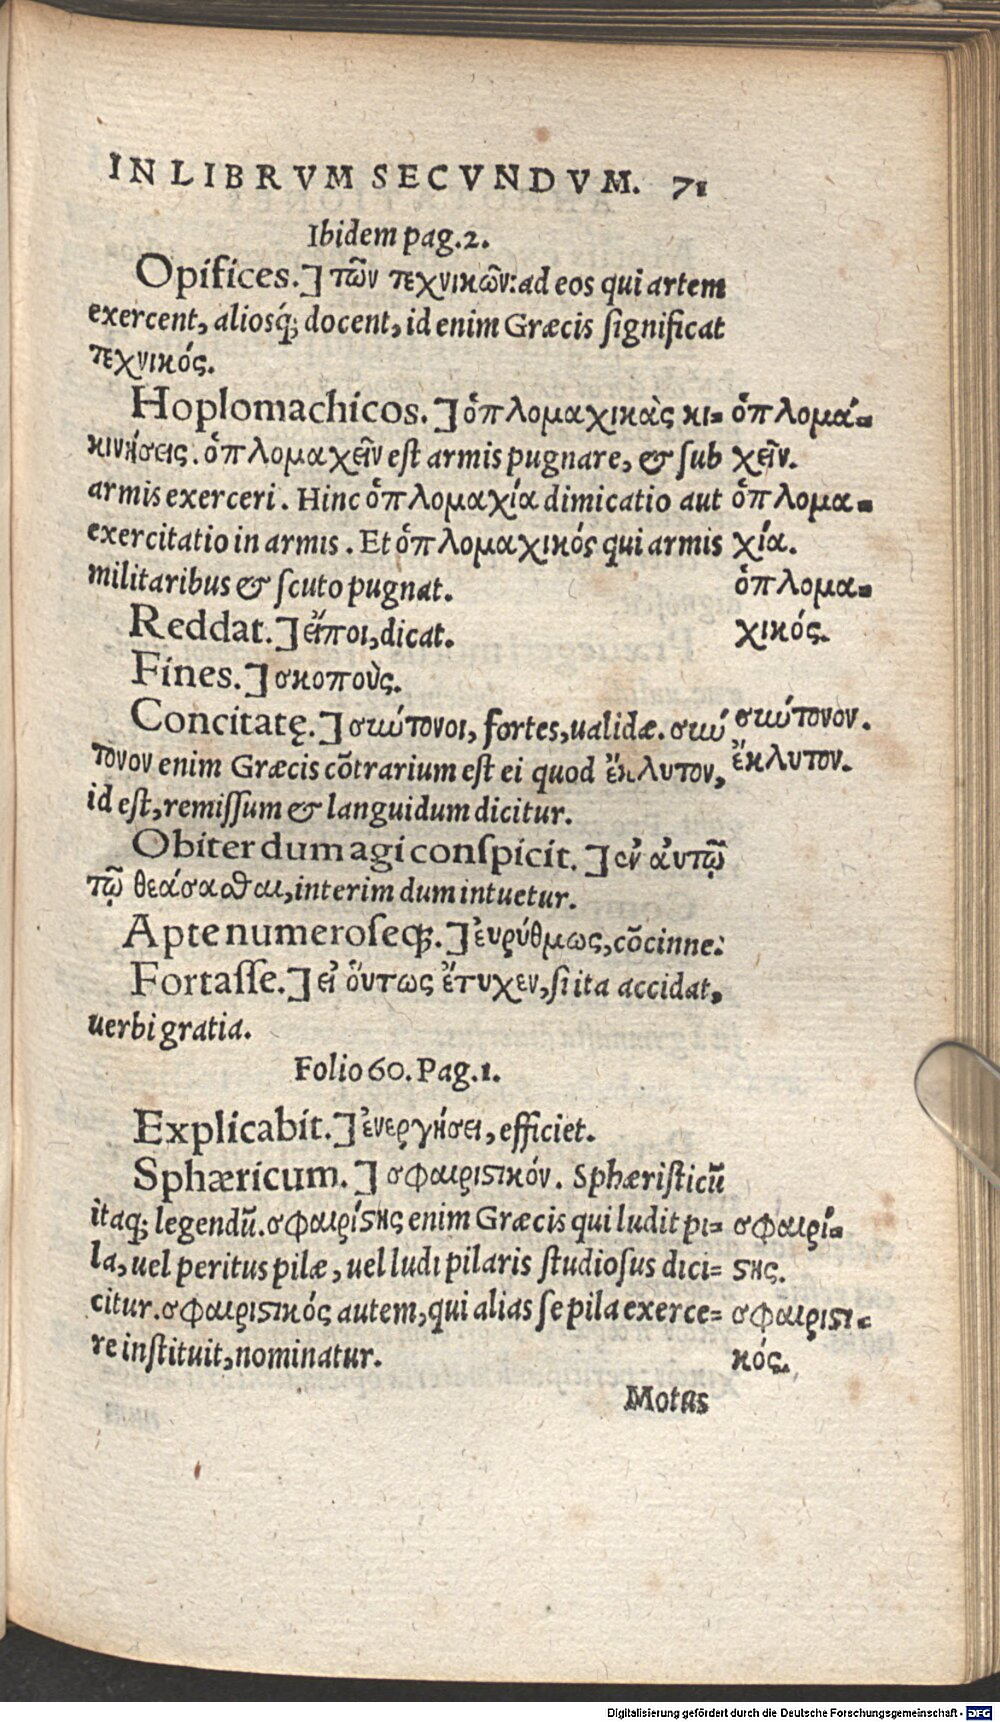 IN LIBRVM SECVNDVM. 71
Ibidem pag.2.
Opifices.] τῶν τεχνικῶν: ad eos qui artem
exercent, aliosq́; docent, id enim Græcis ſignificat
τεχνικός.
Hoplomachicos.] ὁπλομαχικὰς κι=
κινήσεις. ὁπλομαχεῖν est armis pugnare, & ſub
armis exerceri. Hinc ὁπλομαχία dimicatio aut
exercitatio in armis. Et ὁπλομαχικός qui armis
militaribus & ſcuto pugnat.
ὁπλομά=
χεῖν.
ὁπλομα=
χία.
ὁπλομα=
χικός.
Reddat.] εἴποι, dicat.
Fines.] σκοποὺς.
Concitatę.] σωύτονοι, fortes, ualidæ. σωύ
τονον enim Græcis cōtrarium eſt ei quod ἔκλυτον,
id eſt, remiſſum & languidum dicitur.
σωύτονον.
ἔκλυτον.
Obiter dum agi conſpicit.] ἐν ἀυτῷ
τῷ θεάσασθαι, interim dum intuetur.
Apte numeroſeq;.] ἐυρύθμως, cōcinne:
Fortaſſe.] εἰ ὅυτως ἔτυχεν, ſi ita accidat,
uerbi gratia.
Folio 60. Pag.1.
Explicabit.] ἐνεργήσει, efficiet.
Sphæricum.] σφαιριστικόν. Sphæriſticū
itaq; legendū. σφαιρίστης enim Græcis qui ludit pi=
la, uel peritus pilæ, uel ludi pilaris ſtudioſus dici=
citur. σφαιριστικός autem, qui alias ſe pila exerce=
re inſtituit, nominatur.
σφαιρί=
στης.
σφαιριστι=
κός.
Motus
Digitalisierung gefördert durch die Deutsche Forschungsgemeinschaft - DFG